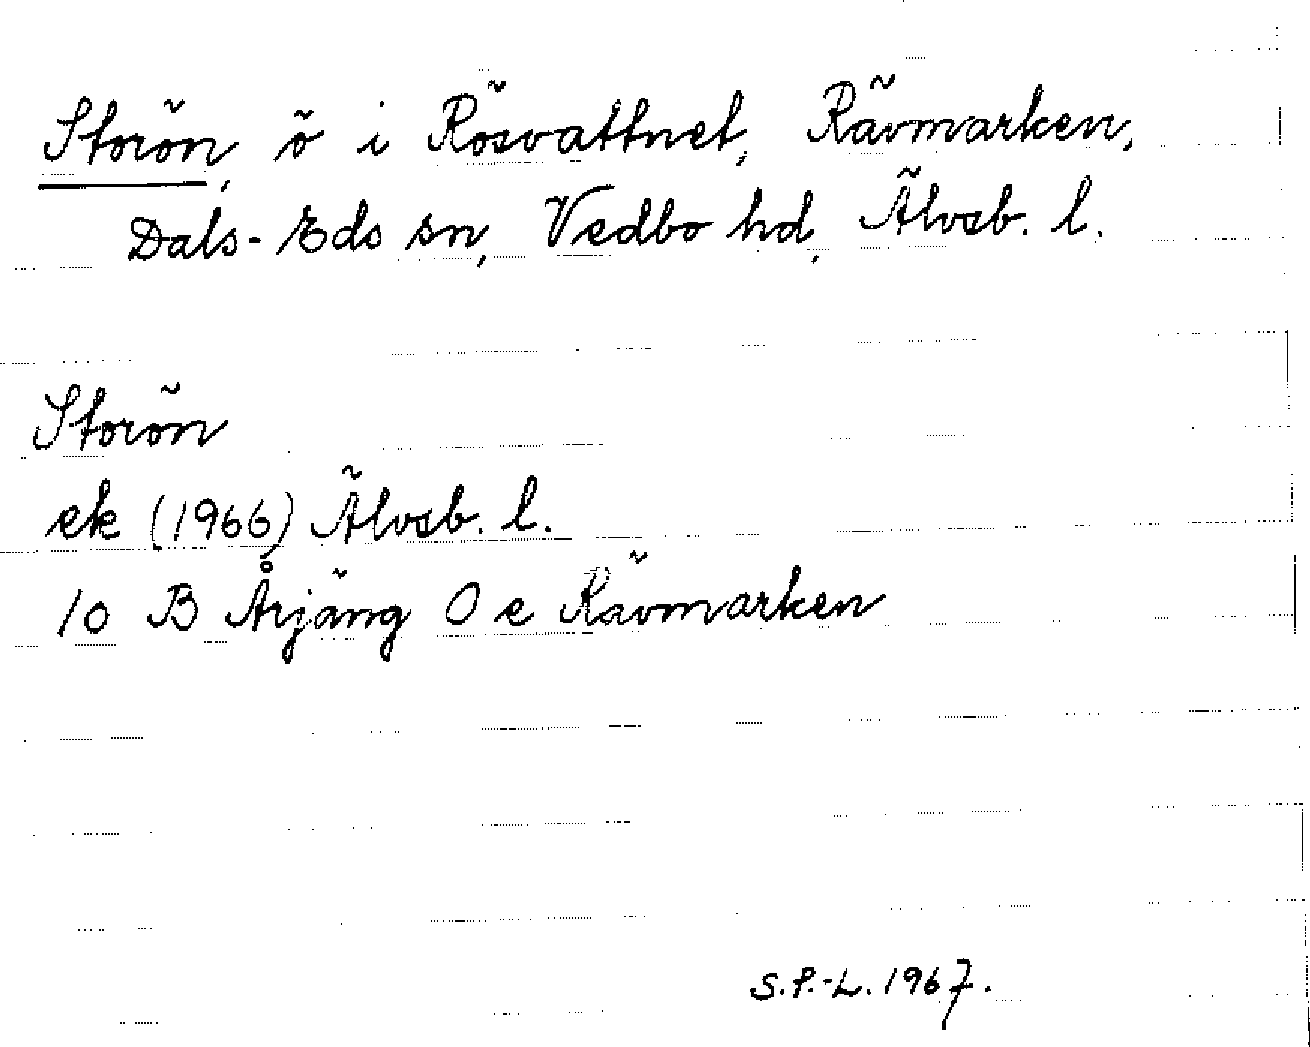 Storön, ö i Rösvattnet, Rävmarken,
Dals-Eds sn, Vedbo hd, Älvsb. l.
Storön
ek (1966) Älvsb. l.
10 B Årjäng 0 e Rävmarken
S.P.-L. 1967.